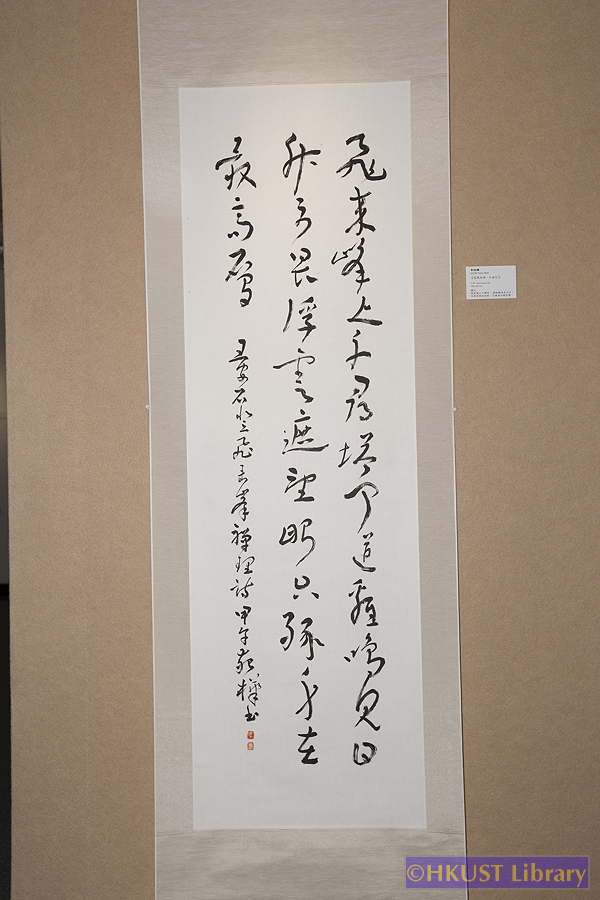 飛來峰上千尋塔聞道雞鳴見日
升不畏浮雲遮望眼只緣身在
最高層
王安石登飛來峯禪理詩 甲午 書
©HKUST Library